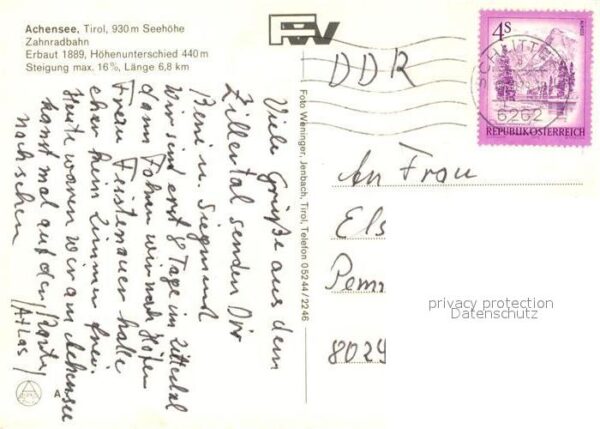 Achensee, Tirol, 930 m Seehöhe
Zahnradbahn
Erbaut 1889, Höhenunterschied 440 m
Steigung max. 16%, Länge 6,8 km
Viele Grüße aus dem
Zillertal senden Dir
Beni u. Siegmund
Wir sind erst 8 Tage im Zillertal
dann fahren wir nach
Frau hatte
kein Zimmer frei.
Heute waren wir am Achensee
kannst mal auf der Karte
nachsehen (Atlas)
Foto Weninger, Jenbach, Tirol, Telefon 05244/2246
FW
DDR
4S
SCHLITTE
6262
REPUBLIK ÖSTERREICH
An Frau
Els
8029
privacy protection
Datenschutz
A